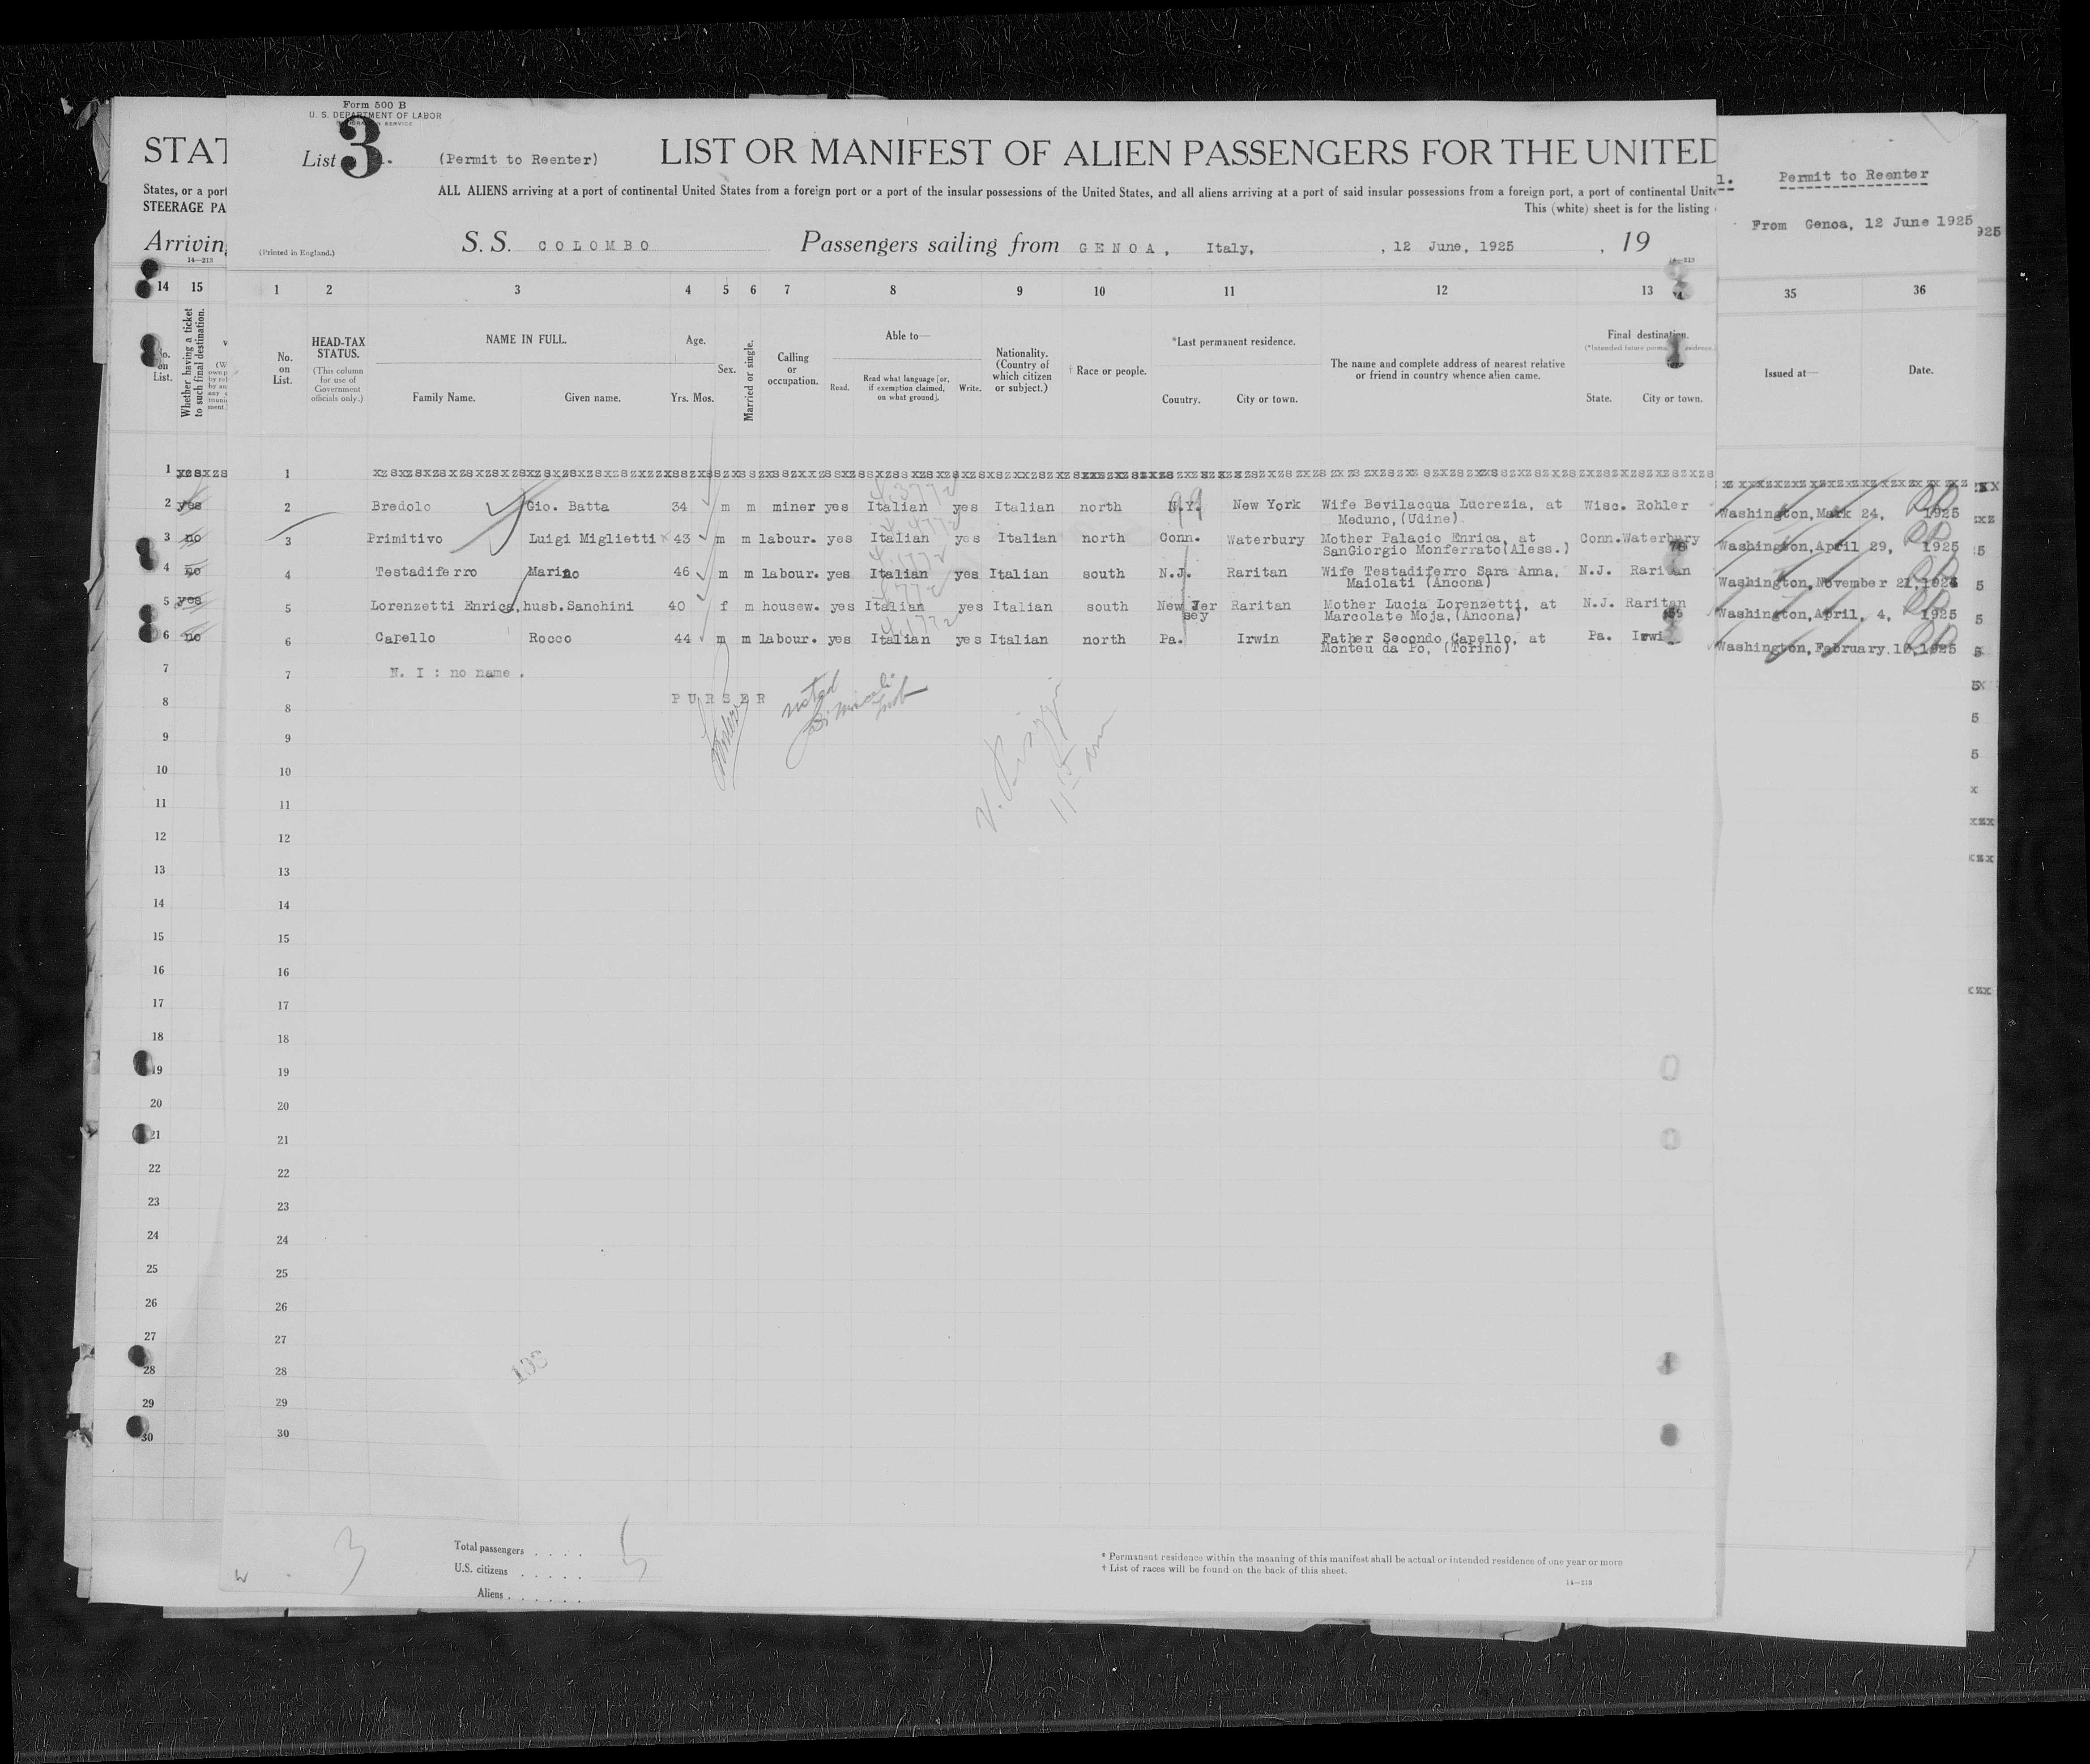 Form 500 B
U. S. DEPARTMENT OF LABOR
IMMIGRATION SERVICE
STAT
List 3. (Permit to Reenter) LIST OR MANIFEST OF ALIEN PASSENGERS FOR THE UNITED
1. Permit to Reenter
States, or a port
ALL ALIENS arriving at a port of continental United States from a foreign port or a port of the insular possessions of the United States, and all aliens arriving at a port of said insular possessions from a foreign port, a port of continental Unite
STEERAGE PA
This (white) sheet is for the listing
From Genoa, 12 June 1925
925
Arriving
14—213
(Printed in England.)
S. S. COLOMBO Passengers sailing from GENOA, Italy, , 12 June, 1925 , 19
14—213
14 15 1 2 3 4 5 6 7 8 9 10 11 12 13 35 36
No. on List.
Whether having a ticket to such final destination.
No. on List.
HEAD-TAX STATUS.
(This column for use of Government officials only.)
NAME IN FULL.
Family Name. Given name.
Age.
Yrs. Mos.
Sex.
Married or single.
Calling or occupation.
Able to—
Read. Read what language [or, if exemption claimed, on what ground]. Write.
Nationality. (Country of which citizen or subject.)
† Race or people.
*Last permanent residence.
Country. City or town.
The name and complete address of nearest relative or friend in country whence alien came.
Final destination.
State. City or town.
Issued at— Date.
1 yes 1
2 yes 2 Bredolo Gio. Batta 34 m m miner yes Italian yes Italian north N.Y. New York Wife Bevilacqua Lucrezia, at Meduno, (Udine) Wisc. Rohler Washington, Mark 24, 1925
3 no 3 Primitivo Luigi Miglietti 43 m m labour. yes Italian yes Italian north Conn. Waterbury Mother Palacio Enrica, at SanGiorgio Monferrato(Aless.) Conn. Waterbury Washington, April 29, 1925
4 no 4 Testadiferro Marino 46 m m labour. yes Italian yes Italian south N.J. Raritan Wife Testadiferro Sara Anna, Maiolati (Ancona) N.J. Raritan Washington, November 21, 1924
5 yes 5 Lorenzetti Enrica, husb. Sanchini 40 f m housew. yes Italian yes Italian south New Jersey Raritan Mother Lucia Lorenzetti, at Marcolate Moja, (Ancona) N.J. Raritan Washington, April, 4, 1925
6 no 6 Capello Rocco 44 m m labour. yes Italian yes Italian north Pa. Irwin Father Secondo Capello, at Monteu da Po, (Torino) Pa. Irwin Washington, February 1 1925
7 7 N. I : no name .
8 8 PURSER
noted
9 9
10 10
11 11
12 12
13 13
14 14
15 15
16 16
17 17
18 18
19 19
20 20
21 21
22 22
23 23
24 24
25 25
26 26
27 27
28 28
29 29
30 30
3
Total passengers . . . . 5
U.S. citizens . . . . .
Aliens . . . . . .
* Permanent residence within the meaning of this manifest shall be actual or intended residence of one year or more
† List of races will be found on the back of this sheet.
14—213